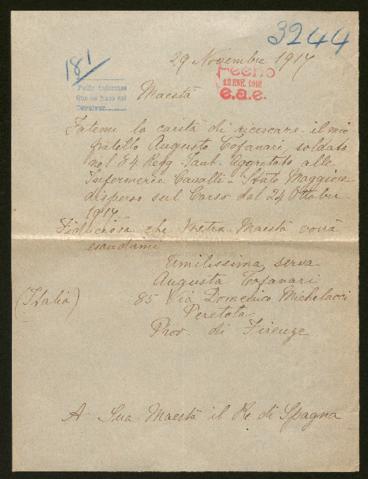 3244
29 Novembre 1917
181
Fecho
12 ENE. 1918
e.a.e.
Pedir informes
Maestà
Fatemi la carità di ricercare il mio
fratello Augusto Tofanari, soldato
nel 84 Regg. Fant. aggregato alla
Infermeria Cavalli - Stato Maggiore
disperso sul Carso dal 24 Ottobre
1917.
Fiduciosa che Vostra Maestà vorrà
esaudirmi
Umilissima serva
Augusta Tofanari
(Italia)
85 Via Domenico Michelacci
Peretola
Prov. di Firenze
A Sua Maestà il Re di Spagna